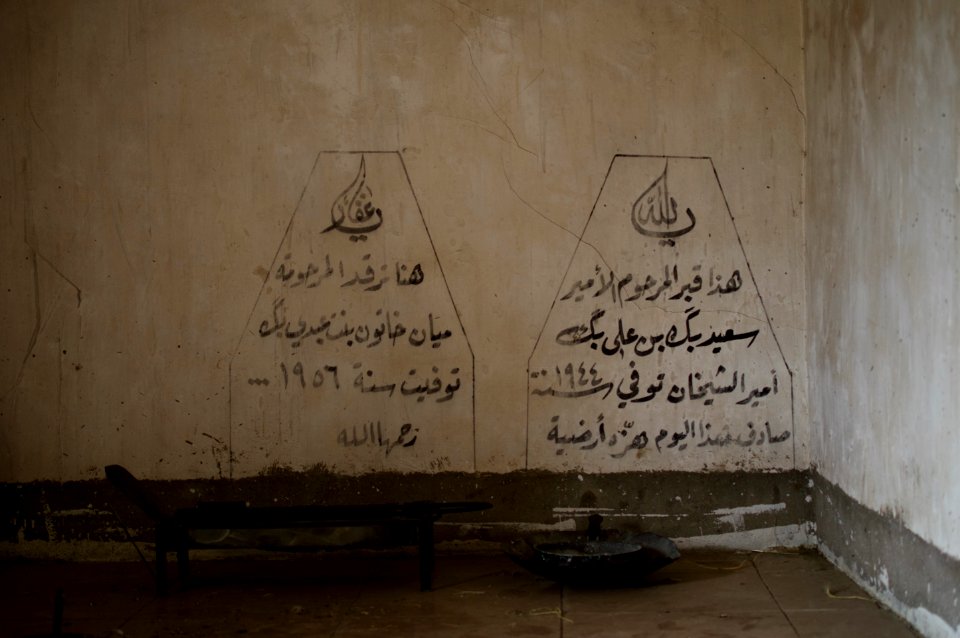 يا الله
هذا قبر المرحوم الأمير
سعيد بگ بن علي بگ
أمير الشيخان توفي سنة ١٩٤٤
صادف هذا اليوم هزّة أرضية
يا غفار
هنا ترقد المرحومة
ميان خاتون بنت عبدي بگ
توفيت سنة ١٩٥٦ ...
رحمها الله